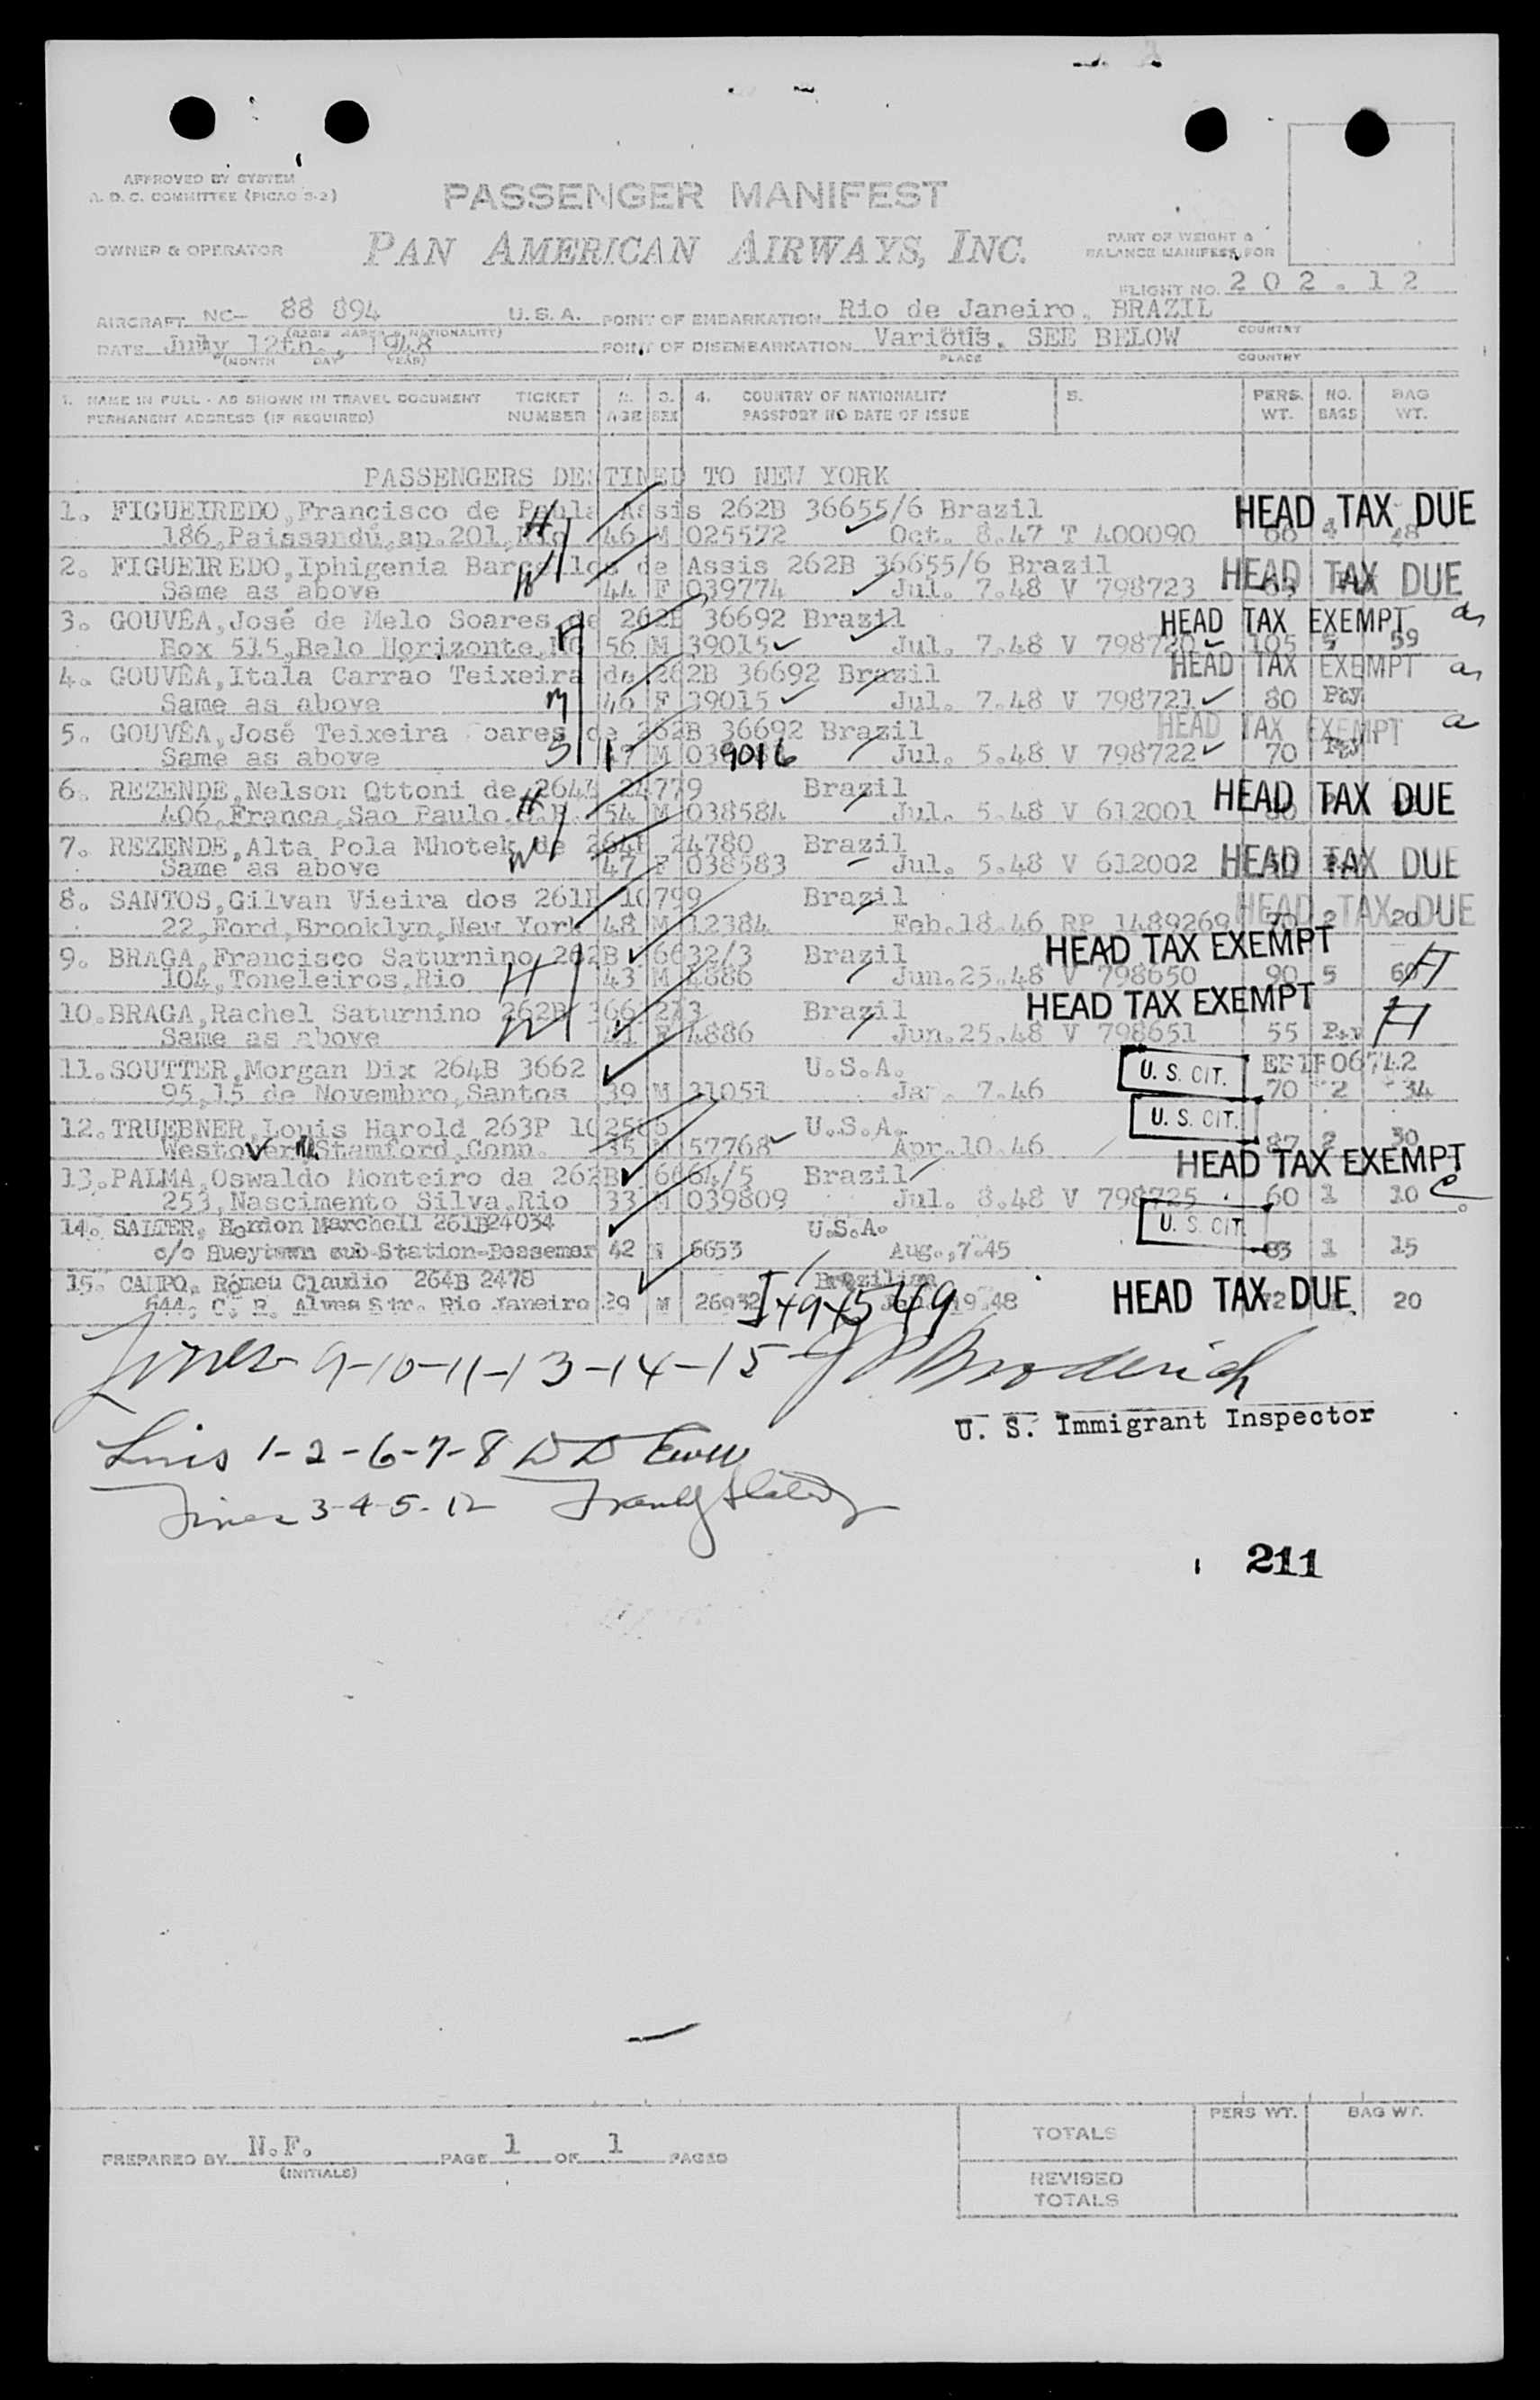 APPROVED BY SYSTEM
A. D. C. COMMITTEE (PICAO S-2)
PASSENGER MANIFEST
OWNER & OPERATOR
PAN AMERICAN AIRWAYS, INC.
PART OF WEIGHT &
BALANCE MANIFEST FOR
FLIGHT NO. 202.12
AIRCRAFT NC- 88 894 U.S.A. POINT OF EMBARKATION Rio de Janeiro, BRAZIL
COUNTRY
DATE 12th., 1948 POINT OF DISEMBARKATION Various. SEE BELOW
(MONTH DAY YEAR) PLACE COUNTRY
1. NAME IN FULL - AS SHOWN IN TRAVEL DOCUMENT TICKET 2. 3. 4. COUNTRY OF NATIONALITY 5. PERS. NO. BAG
PERMANENT ADDRESS (IF REQUIRED) NUMBER AGE SEX PASSPORT NO DATE OF ISSUE WT. BAGS WT.
PASSENGERS DESTINED TO NEW YORK
1. FIGUEIREDO,Francisco de Paula Assis 262B 36655/6 Brazil HEAD TAX DUE
186,Paissandú,ap.201,Rio H 46 M 025572 Oct. 8.47 T 400090 4 48
2. FIGUEIREDO,Iphigenia Barcellos de Assis 262B 36655/6 Brazil HEAD TAX DUE
Same as above W 44 F 039774 Jul. 7.48 V 798723
3. GOUVÊA,José de Melo Soares de 262B 36692 Brazil HEAD TAX EXEMPT
Box 515,Belo Horizonte, H 56 M 39015 Jul. 7.48 V 798720 105 5 59
4. GOUVÊA,Itala Carrao Teixeira de 262B 36692 Brazil HEAD TAX EXEMPT
Same as above 46 F 39015 Jul. 7.48 V 798721 80
5. GOUVÊA,José Teixeira Soares de 262B 36692 Brazil HEAD TAX EXEMPT a
Same as above S 17 M 9016 Jul. 5.48 V 798722 70
6. REZENDE,Nelson Ottoni de 264B 24779 Brazil HEAD TAX DUE
406,Franca,Sao Paulo. H 54 M 038584 Jul. 5.48 V 612001
7. REZENDE,Alta Pola Mhotek de 264B 24780 Brazil HEAD TAX DUE
Same as above W 47 F 038583 Jul. 5.48 V 612002
8. SANTOS,Gilvan Vieira dos 261B 10799 Brazil HEAD TAX DUE
22,Ford,Brooklyn,New York 48 M 12384 Feb.18.46 RP 1489269 70 2 20
9. BRAGA,Francisco Saturnino 262B 6632/3 Brazil HEAD TAX EXEMPT
104,Toneleiros,Rio H 43 M 4886 Jun.25.48 V 798650 90 5 60 H
10.BRAGA,Rachel Saturnino 262B Brazil HEAD TAX EXEMPT
Same as above W 41 F 4886 Jun.25.48 V 798651 55 H
11.SOUTTER,Morgan Dix 264B 3662 U.S.A. U. S. CIT.
95,15 de Novembro,Santos 39 M 31051 7.46 70 2 34
12.TRUEBNER,Louis Harold 263P U.S.A. U. S. CIT.
Westover ,Stamford,Conn. 35 M 57768 Apr.10.46 87 2 30
13.PALMA,Oswaldo Monteiro da 262B 6664/5 Brazil HEAD TAX EXEMPT
253,Nascimento Silva,Rio 33 M 039809 Jul. 8.48 V 798725 60 1 10 C
14. SALTER, Marchell 261B24034 U.S.A. U. S. CIT
c/o Hueytown sub Station-Bessemer 42 M 6653 Aug.,7.45 83 1 15
15. CAMPO, Rómeu Claudio 264B 2478 Brazilian
644, C. R. Alves Str. Rio Janeiro 29 M I494549 19.48 HEAD TAX DUE 20
Lines 9-10-11-13-14-15 Broderick
U. S. Immigrant Inspector
Lines 1-2-6-7-8
Lines 3-4-5-12
211
PERS WT. BAG WT.
TOTALS
PREPARED BY N.F. PAGE 1 OF 1 PAGES
(INITIALS)
REVISED
TOTALS